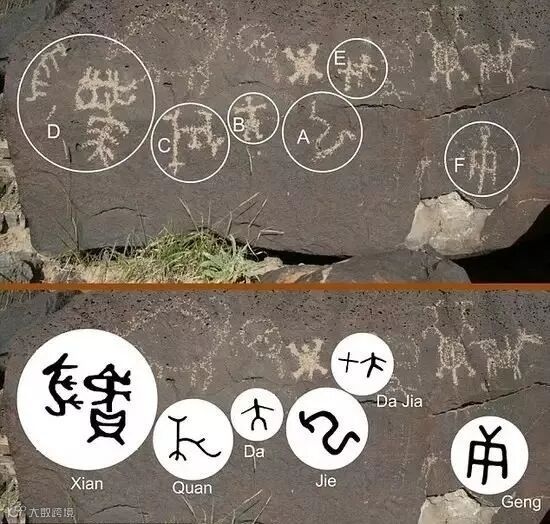 E
D
B
A
C
F
Da Jia
Da
Xian
Quan
Jie
Geng
大数跨境